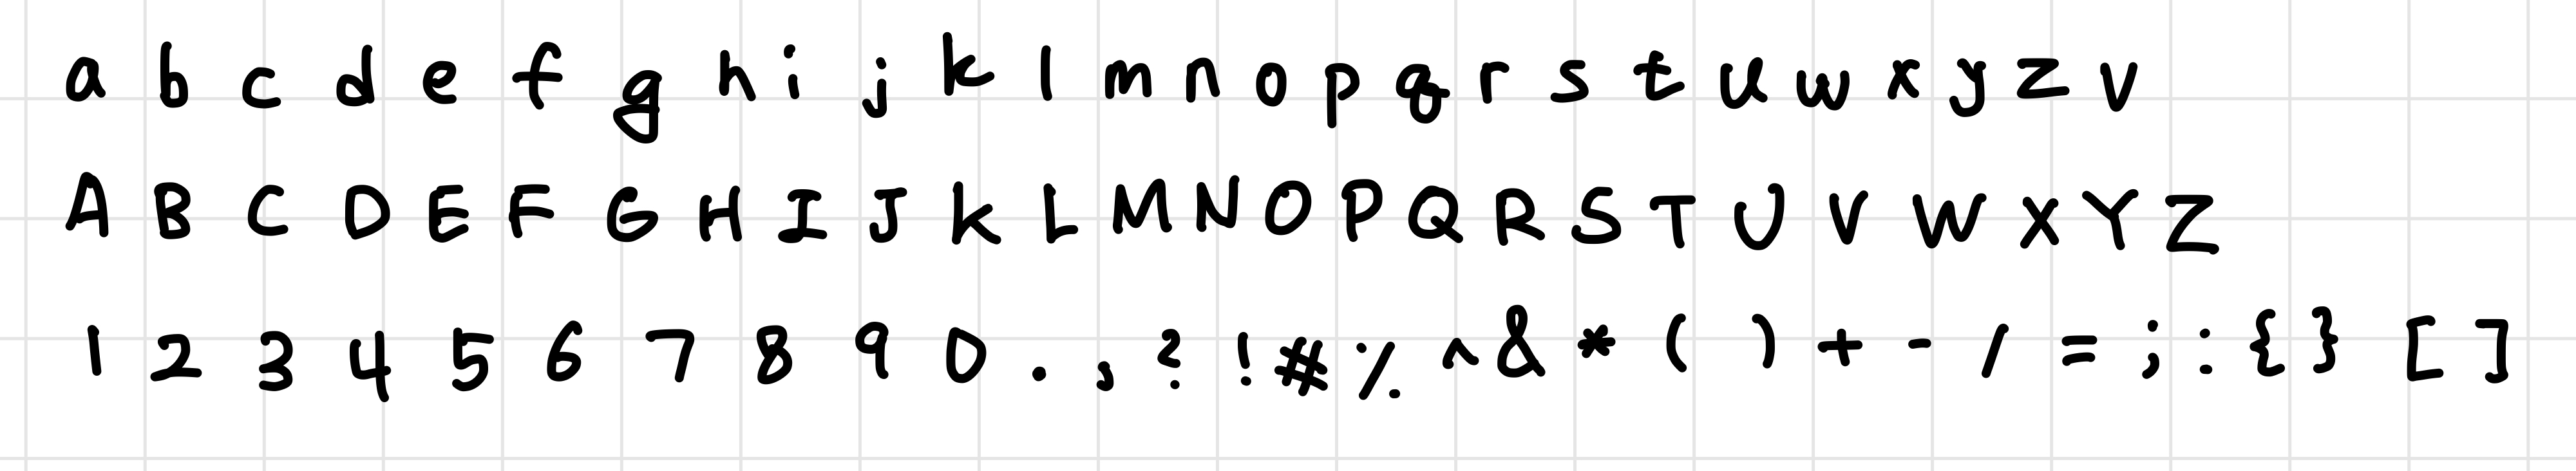 a b c d e f g h i j k l m n o p q r s t u w x y z v
A B C D E F G H I J K L M N O P Q R S T U V W X Y Z
1 2 3 4 5 6 7 8 9 0 . , ? ! # % ^ & * ( ) + - / = ; : { } [ ]